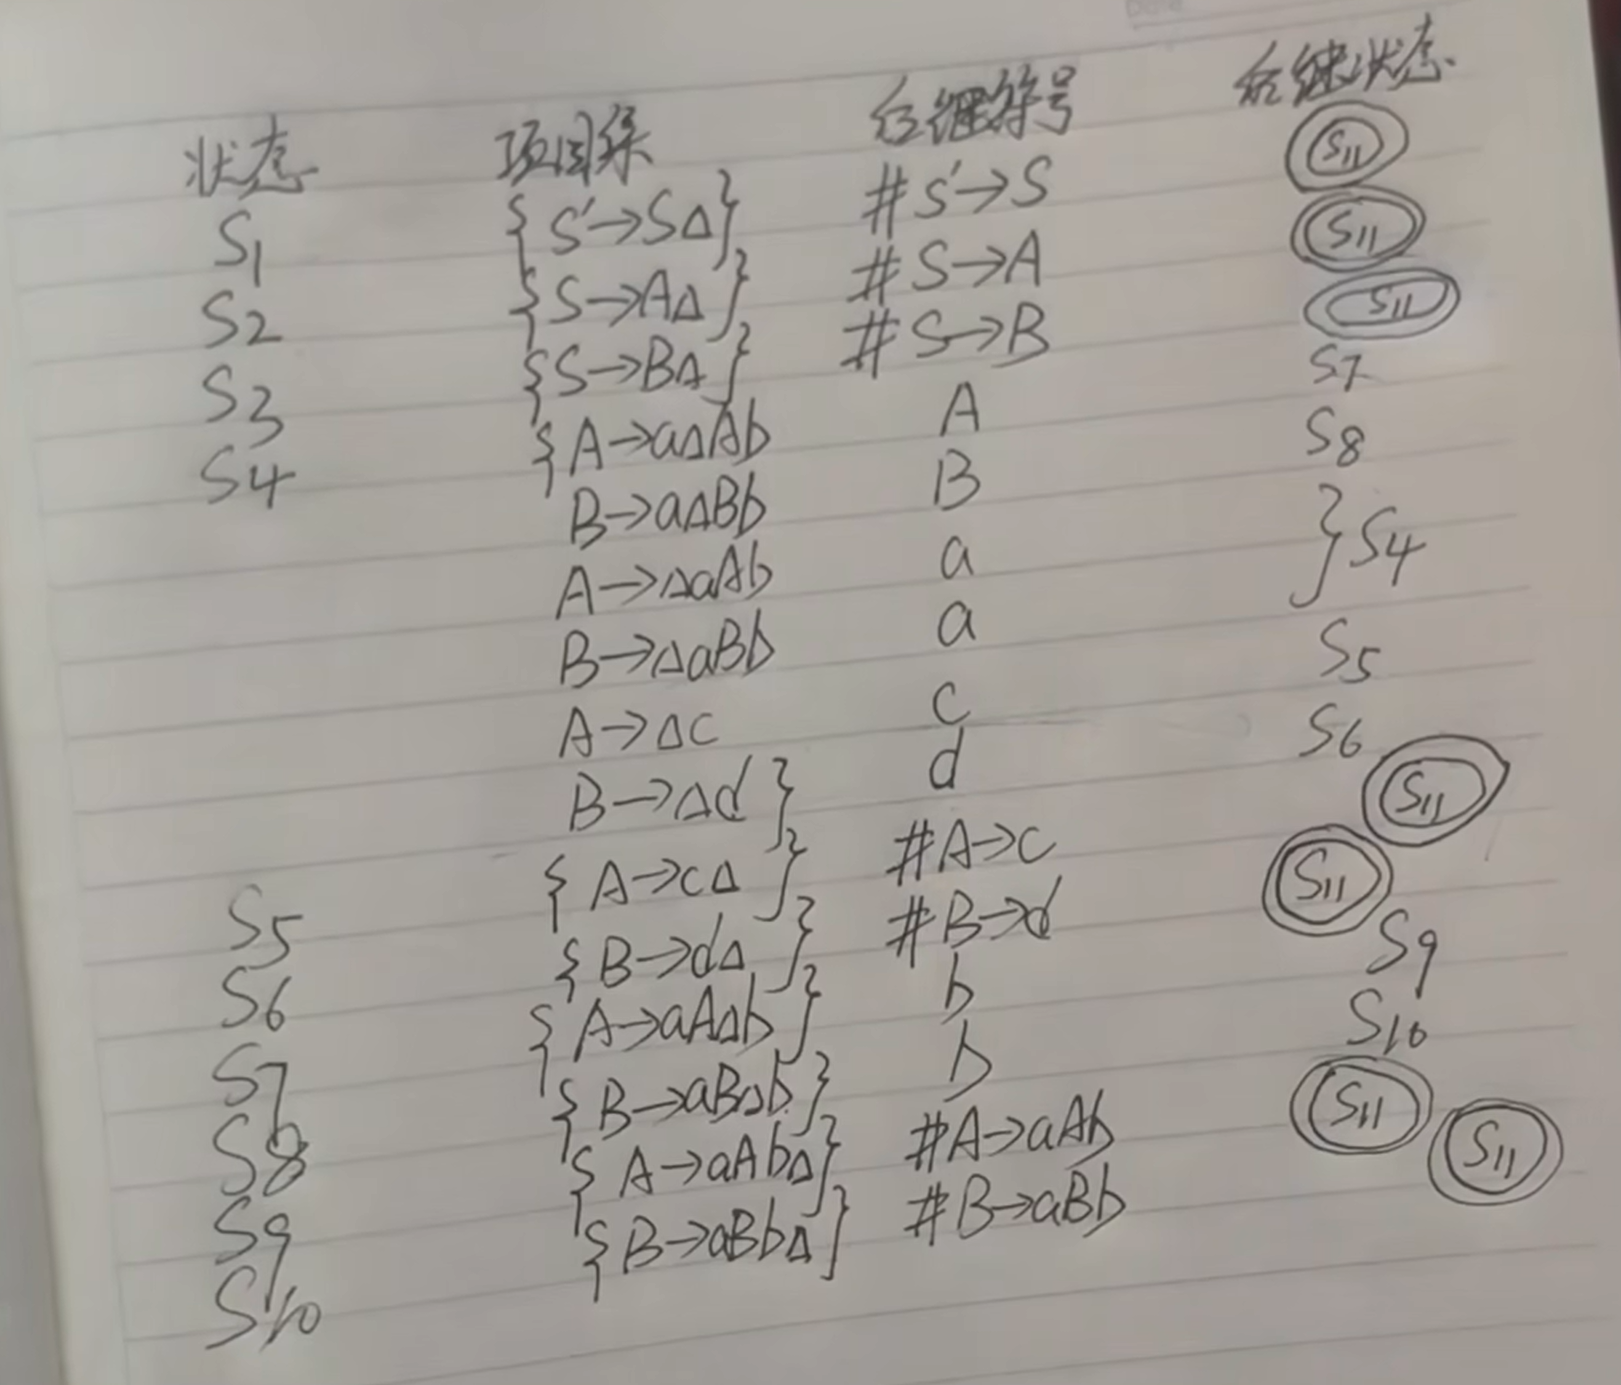 状态 项目集 后继符号 后继状态
S1 {S'→SΔ} #S'→S S11
S2 {S→AΔ} #S→A S11
S3 {S→BΔ} #S→B S11
S4 {A→aΔAb A S7
B→aΔBb B S8
A→ΔaAb a } S4
B→ΔaBb a
A→Δc c S5
B→Δd} d S6
S5 {A→cΔ} #A→c S11
S6 {B→dΔ} #B→d S11
S7 {A→aAΔb} b S9
S8 {B→aBΔb} b S10
S9 {A→aAbΔ} #A→aAb S11
S10 {B→aBbΔ} #B→aBb S11